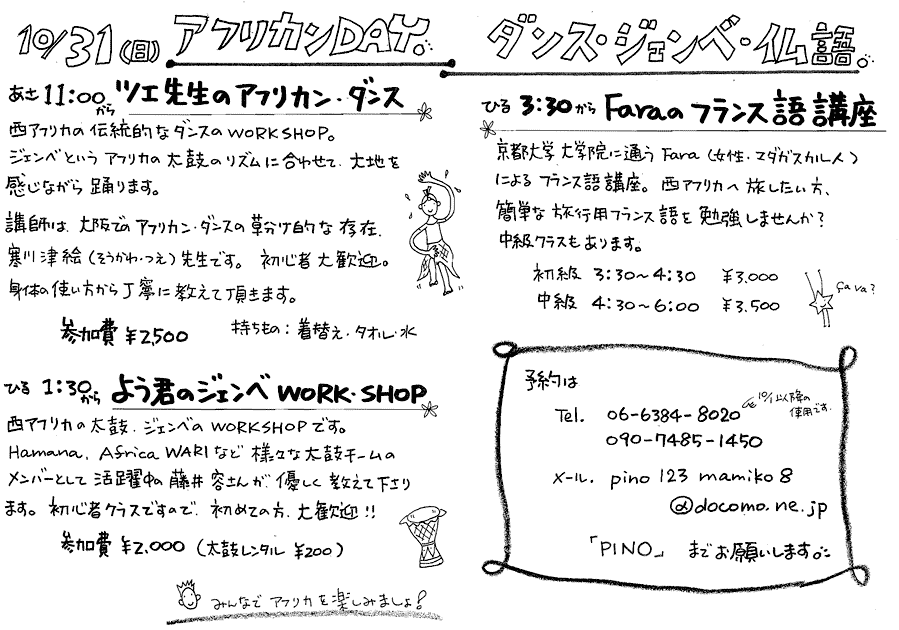 10/31(日) アフリカンDAY。
ダンス・ジェンベ・仏語。
あさ 11:00から ツエ先生のアフリカン・ダンス
西アフリカの伝統的なダンスのWORKSHOP。
ジェンベというアフリカの太鼓のリズムに合わせて、大地を
感じながら踊ります。
講師は、大阪でのアフリカン・ダンスの草分け的な存在、
寒川津絵(そうがわ・つえ)先生です。 初心者大歓迎。
身体の使い方から丁寧に教えて頂きます。
参加費 ¥2,500 持ちもの:着替え・タオル・水
ひる 1:30から よう君のジェンベ WORK・SHOP
西アフリカの太鼓、ジェンベのWORKSHOPです。
Hamana, Africa WARIなど 様々な太鼓チームの
メンバーとして活躍中の藤井容さんが、優しく教えて下さり
ます。初心者クラスですので、初めての方、大歓迎!!
参加費 ¥2,000 (太鼓レンタル ¥200)
みんなで アフリカを楽しみましょ!
ひる 3:30から Faraのフランス語講座
京都大学大学院に通うFara(女性・マダガスカル人)
によるフランス語講座。西アフリカへ旅したい方、
簡単な旅行用フランス語を勉強しませんか?
中級クラスもあります。
初級 3:30~4:30 ¥3,000
中級 4:30~6:00 ¥3,500
ça va?
予約は
Tel. 06-6384-8020
10/1以降の
使用です。
090-7485-1450
メール. pino123mamiko8
@docomo.ne.jp
「PINO」 までお願いします。